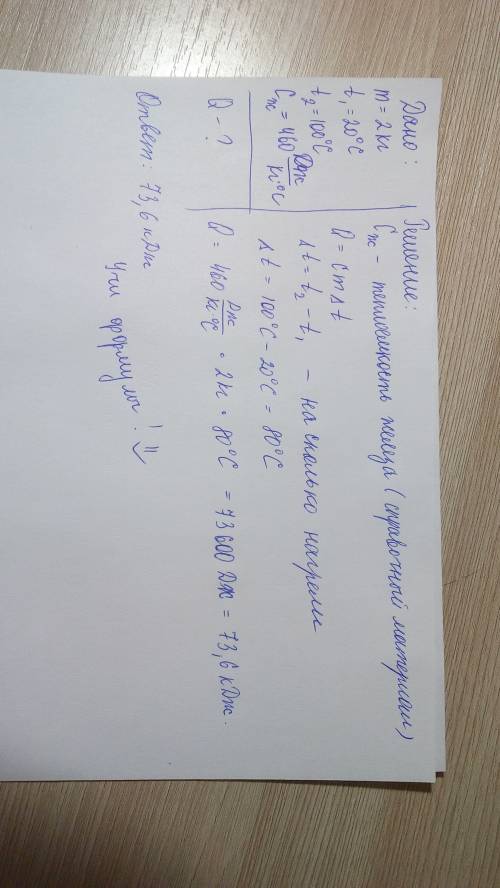 Дано:
m = 2 кг
t₁ = 20°C
t₂ = 100°C
Cж = 460 Дж/кг·°C
Q - ?
Решение:
Cж - теплоемкость железа (справочный материал)
Q = cmΔt
Δt = t₂ - t₁ - на сколько нагрели
Δt = 100°C - 20°C = 80°C
Q = 460 Дж/кг·°C · 2кг · 80°C = 73600 Дж = 73,6 кДж.
Ответ: 73,6 кДж
Учи формулы!